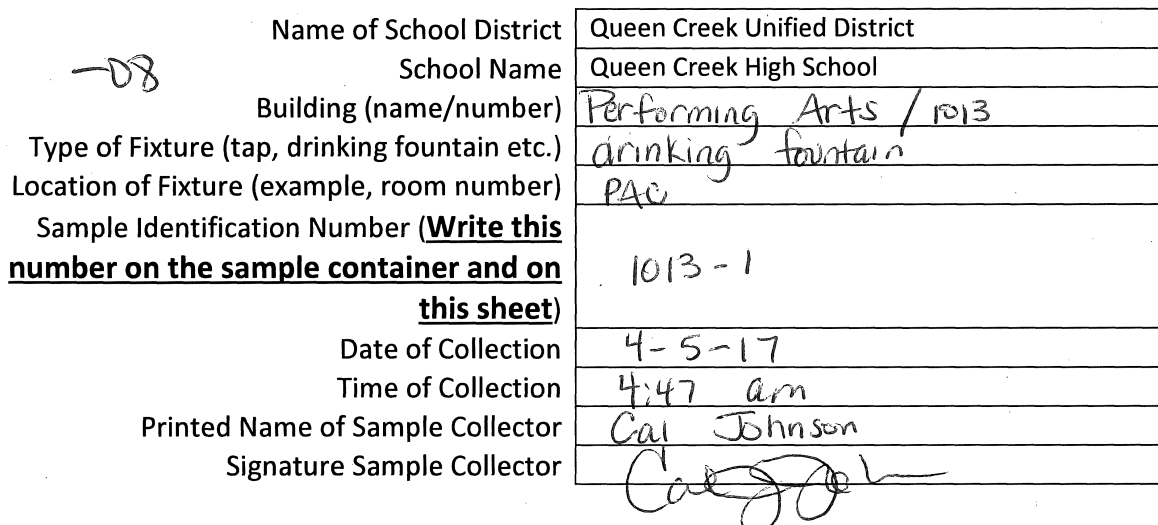 Name of School District Queen Creek Unified District
-08
School Name Queen Creek High School
Building (name/number) Performing Arts / 1013
Type of Fixture (tap, drinking fountain etc.) drinking fountain
Location of Fixture (example, room number) PAC
Sample Identification Number (Write this
number on the sample container and on
this sheet)
1013-1
Date of Collection 4-5-17
Time of Collection 4:47 am
Printed Name of Sample Collector Cal Johnson
Signature Sample Collector